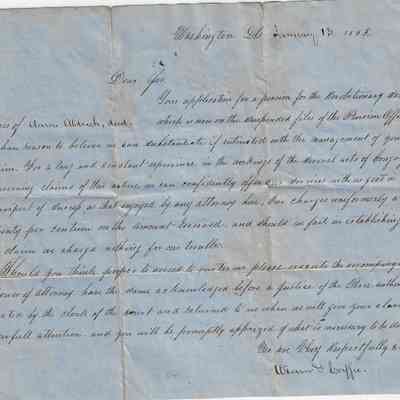 Washington DC January 13
Dear Sir
Your application for a pension for the Revolutionary
of Aaron Aldrich, decd. which is now on the suspended files of the Pension
reason to believe we can substantiate if intrusted with the management of
For a long and constant experience in the workings of the several acts of
claims of this nature, we can confidently offer our services with as good a
prospect of success as that enjoyed by any attorney here. Our charge is uniformly
per centum on the amount received, and should we fail in establishing
claim we charge nothing for our trouble.
Should you think proper to accede to our terms please execute the
of attorney have the same acknowledged before a Justice of the Peace
by the clerk of the court and returned to us when we will give your
attention and you will be promptly apprized of what is necessary to be
We are Very Respectfully